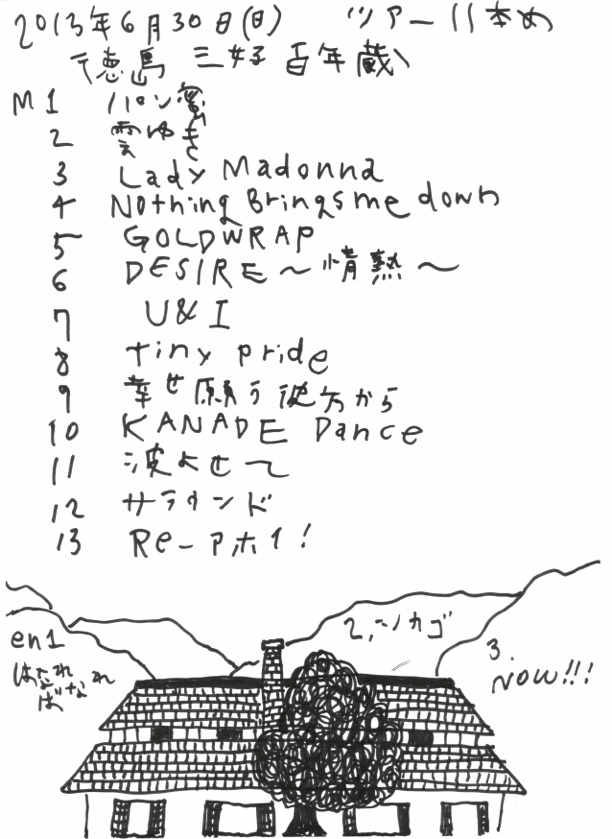 2013年6月30日(日) ツアー11本め
徳島 三好 百年蔵
M1 パン蜜
2 雲ゆき
3 Lady Madonna
4 Nothing Brings me down
5 GOLDWRAP
6 DESIRE〜情熱〜
7 U&I
8 tiny pride
9 幸せ願う彼方から
10 KANADE Dance
11 波よせて
12 サラウンド
13 Re-アホイ!
en1
はなれ
ばなれ
2,シノカゴ
3.
NOW!!!